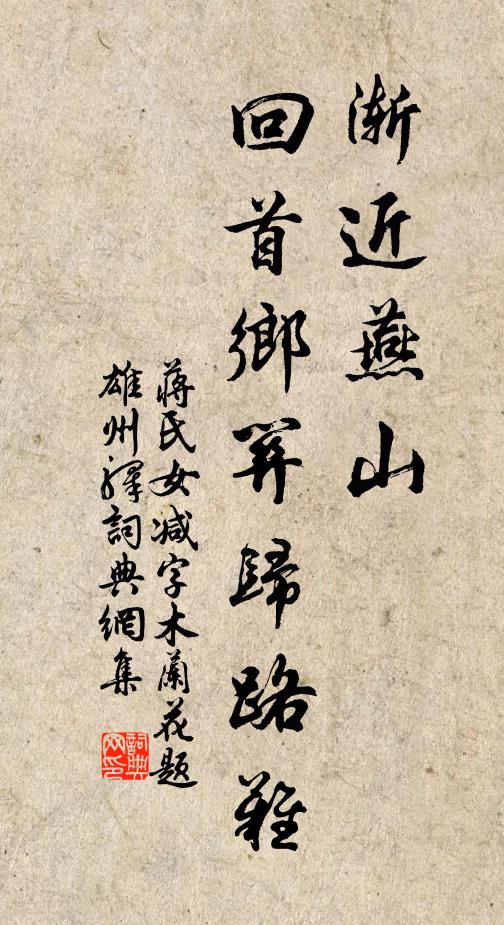 漸近燕山
回首鄉關歸路難
蔣氏女減字木蘭花題
雄州驛詞典網集
詞典
网印